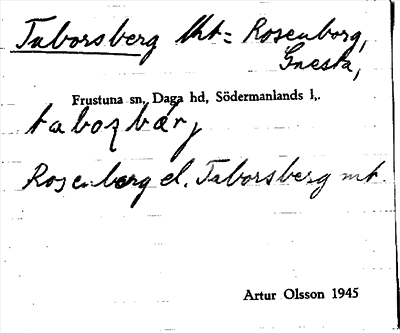 Taborsberg lht = Rosenborg,
Gnesta,
Frustuna sn, Daga hd, Södermanlands l,.
tabоʂbärj
Rosenborg el. Taborsberg mt.
Artur Olsson 1945